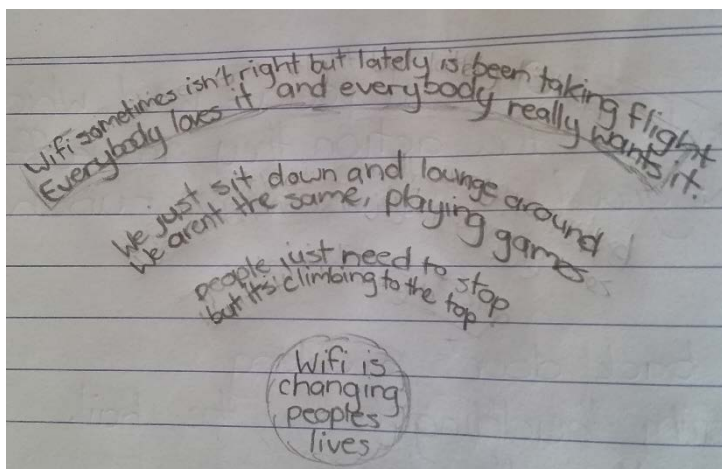 Wifi sometimes isn't right but lately is been taking flight
Everybody loves it and everybody really wants it.
We just sit down and lounge around
We arent the same, playing games
people just need to stop
but it's climbing to the top.
Wifi is
changing
peoples
lives